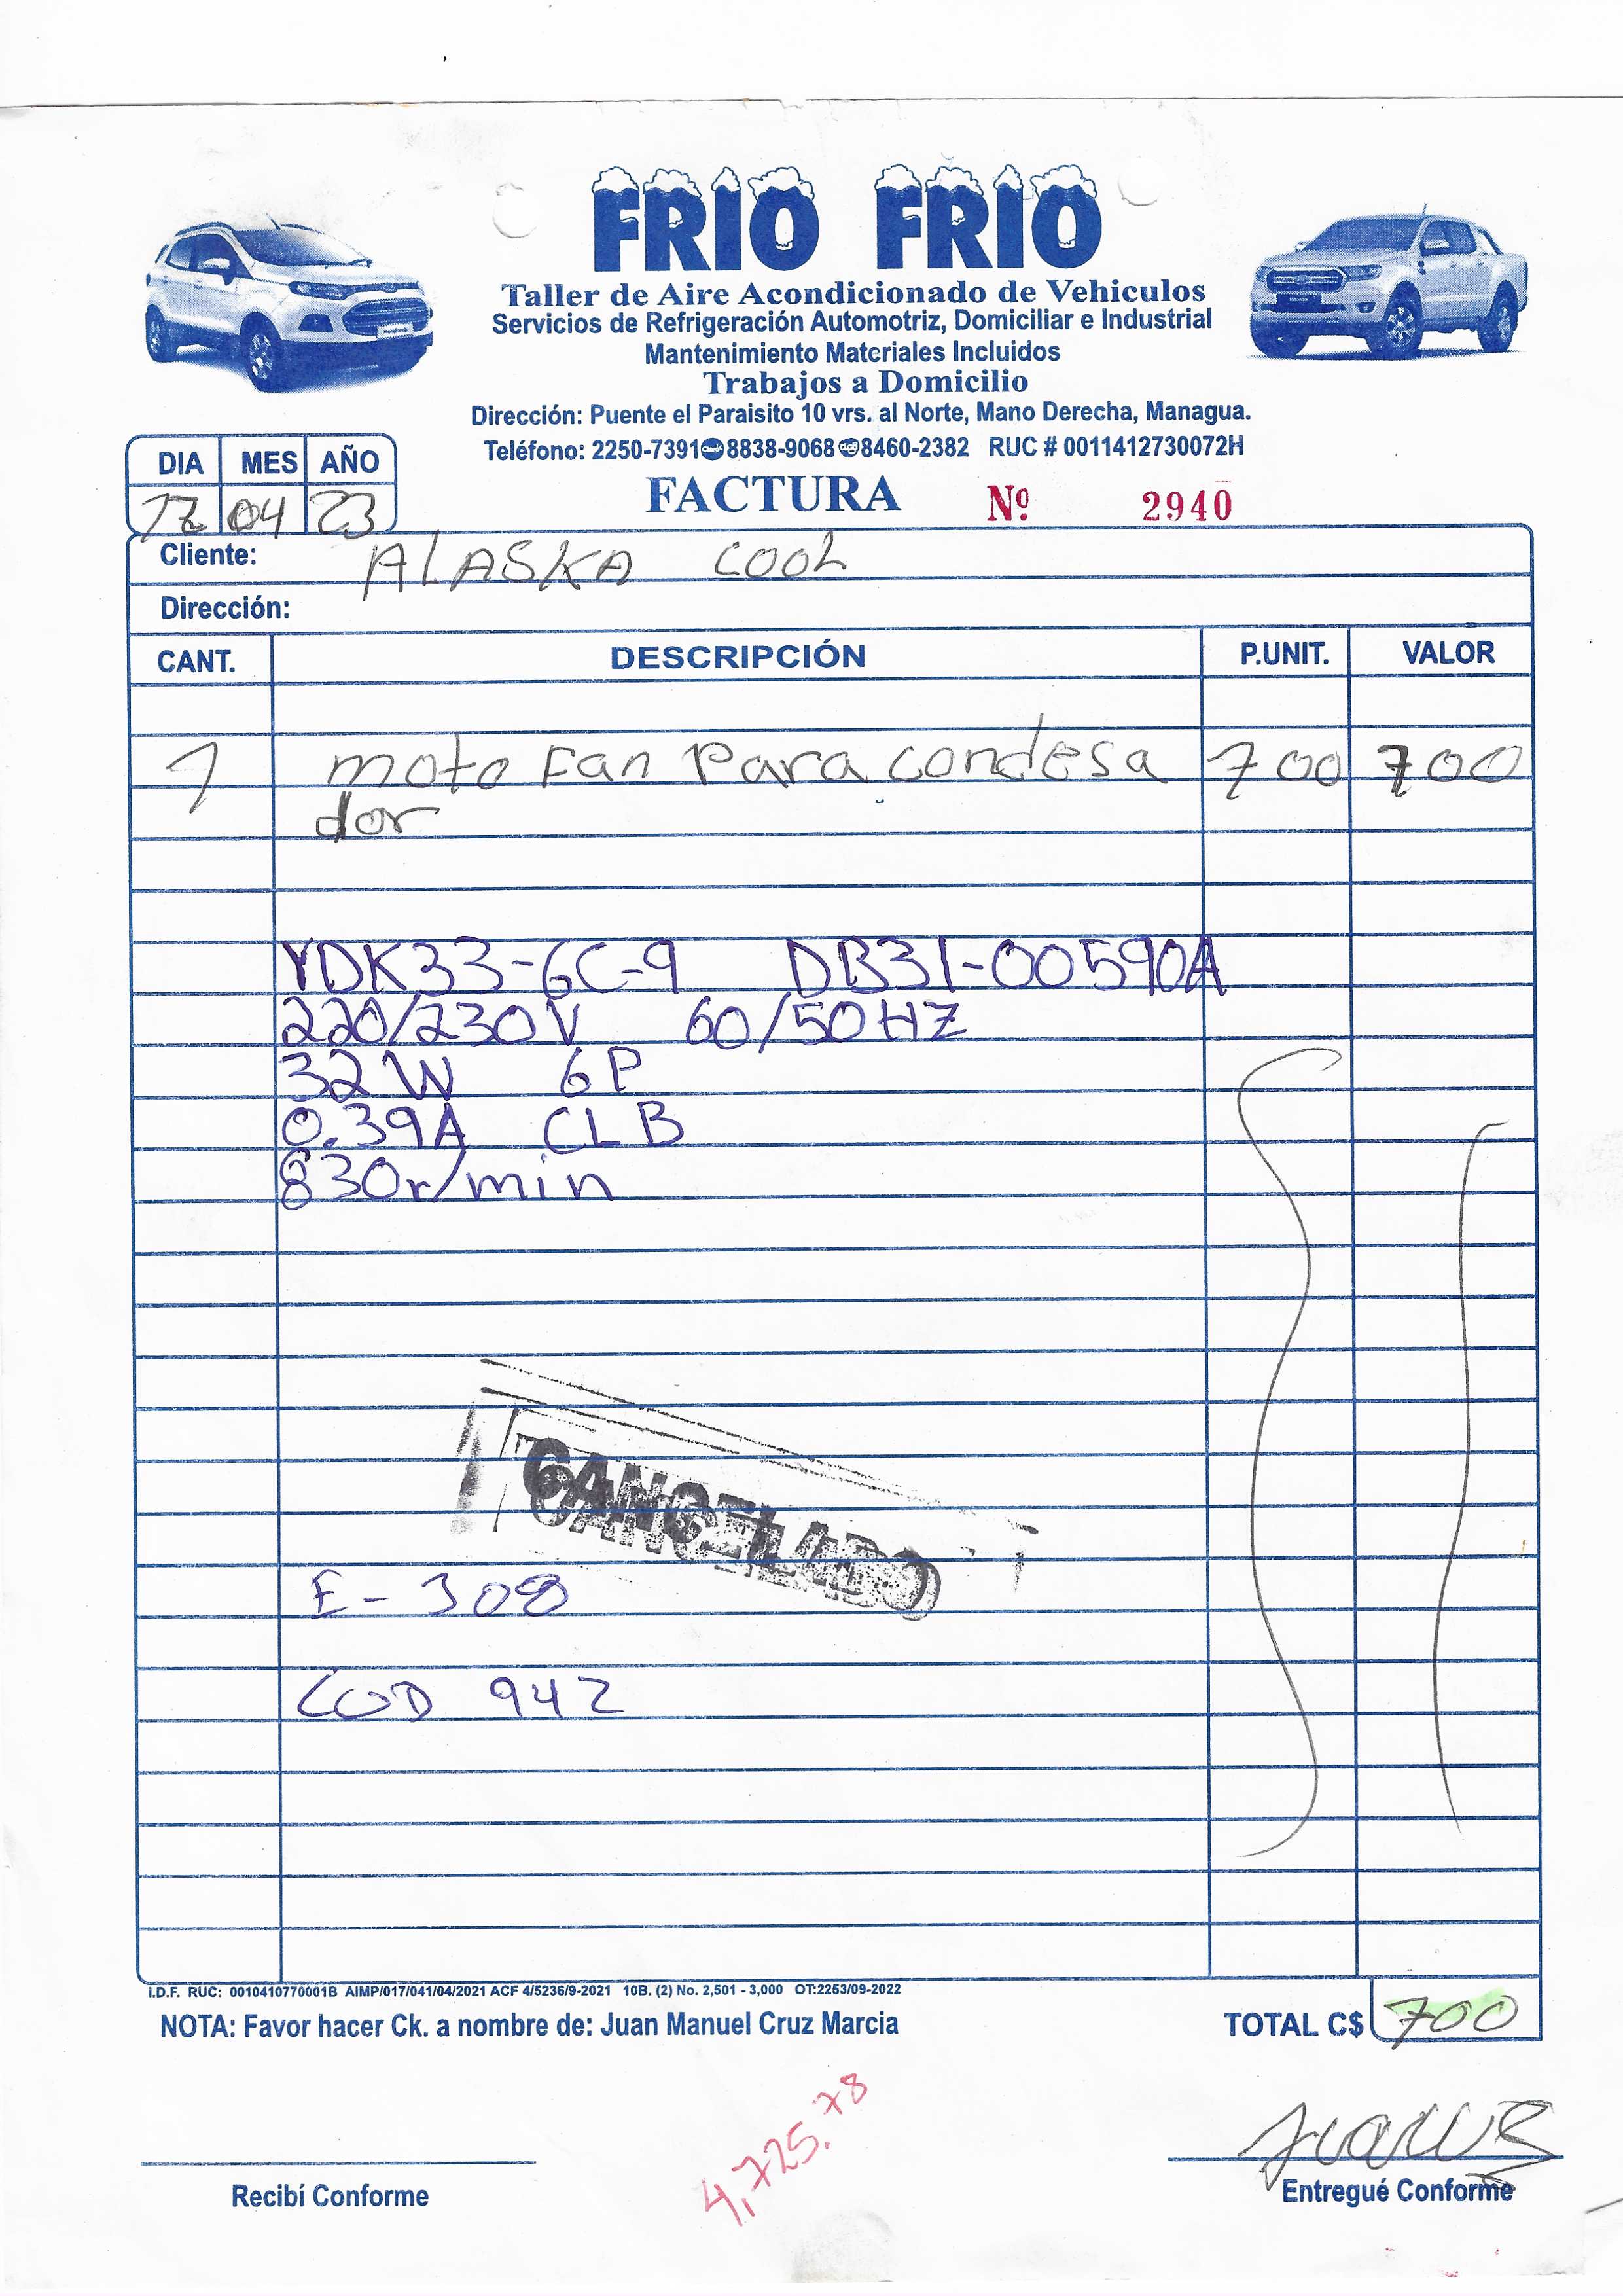 FRIO FRIO
Taller de Aire Acondicionado de Vehiculos
Servicios de Refrigeración Automotriz, Domiciliar e Industrial
Mantenimiento Materiales Incluidos
Trabajos a Domicilio
Dirección: Puente el Paraisito 10 vrs. al Norte, Mano Derecha, Managua.
Teléfono: 2250-7391 8838-9068 8460-2382 RUC # 0011412730072H
DIA MES AÑO
17 04 23
FACTURA Nº 2940
Cliente: ALASKA COOL
Dirección:
CANT. DESCRIPCIÓN P.UNIT. VALOR
1 moto Fan Para condesa 700 700
dor
YDK33-6C-9 DB31-00590A
220/230V 60/50HZ
32W 6P
0.39A CLB
830r/min
CANCELADO
E-308
COD 942
I.D.F. RUC: 0010410770001B AIMP/017/041/04/2021 ACF 4/5236/9-2021 10B. (2) No. 2,501 - 3,000 OT:2253/09-2022
NOTA: Favor hacer Ck. a nombre de: Juan Manuel Cruz Marcia
TOTAL C$ 700
4,725.78
Recibí Conforme
Entregué Conforme